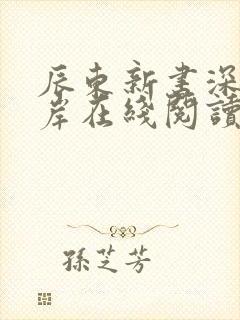 辰东新书深
岸在綫閱讀
孫芝芳